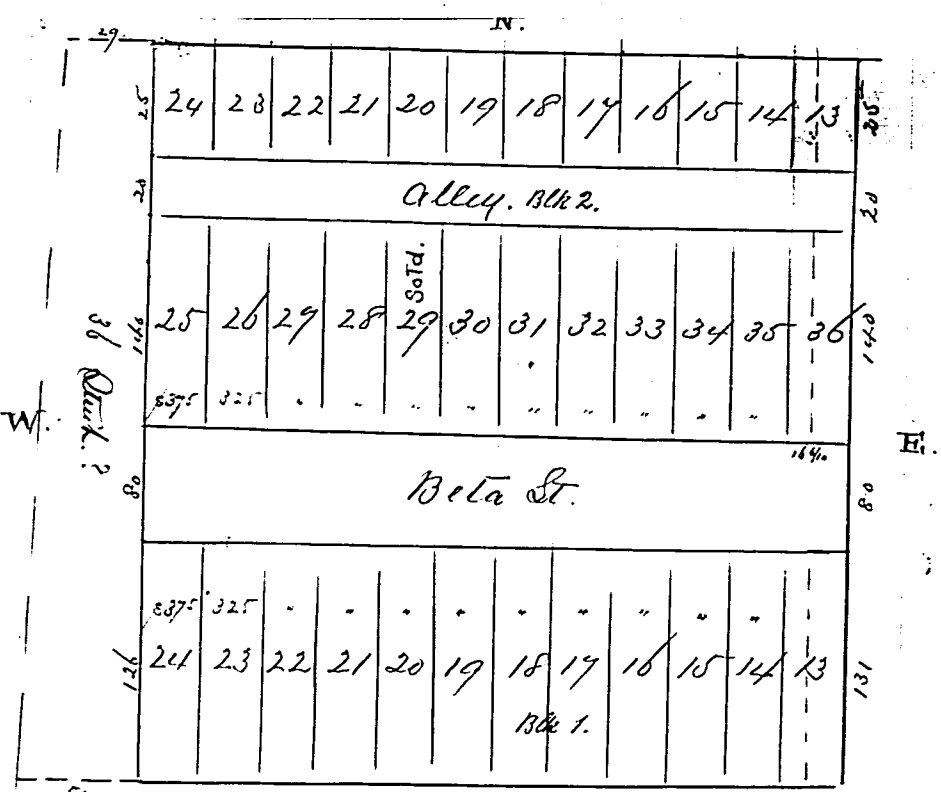 N.
29
25 24 23 22 21 20 19 18 17 16 15 14 13 25
20 Alley. Blk 2. 20
Sold.
146 25 26 29 28 29 30 31 32 33 34 35 36 140
$375 325 " " " " " " " " "
W. E.
16 4/10
80 Beta St. 80
$375 325 " " " " " " " " "
126 24 23 22 21 20 19 18 17 16 15 14 13 131
Blk 1.